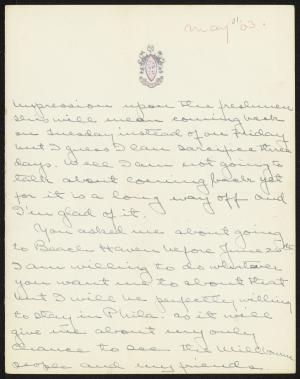 May 31/03.
impression upon the freshmen
this will mean coming back
on Tuesday instead of on Friday
but I guess I can sacrifice three
days. Well I am not going to
talk about coming back yet
for it is a long way off and
I'm glad of it.
You asked me about going
to Beach Haven before June 20th
I am willing to do whatever
you want me to about that
but I will be perfectly willing
to stay in Phila. as it will
give me about my only
chance to see the Millbourne
people and my friends.